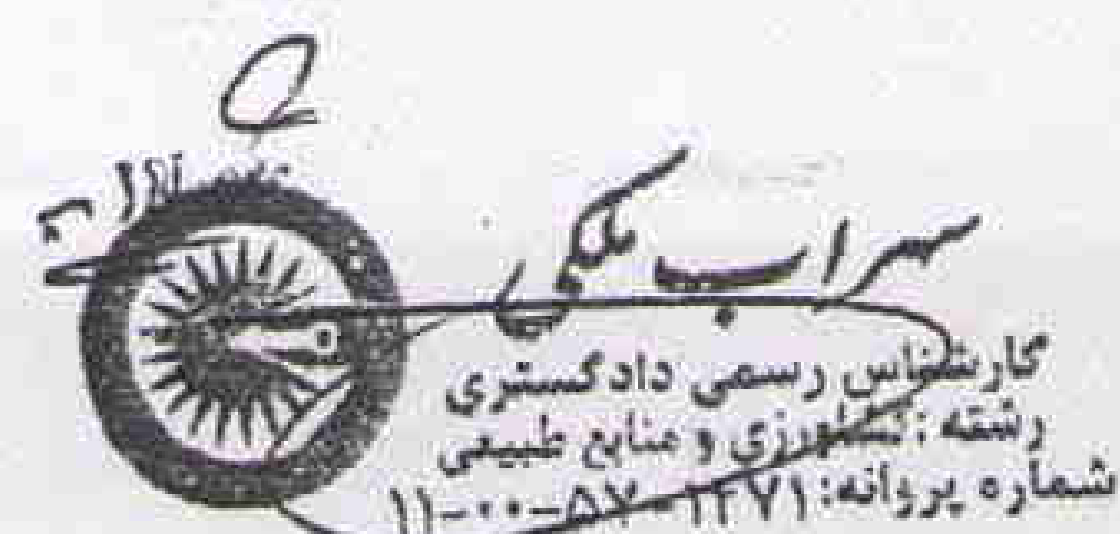 سهراب ملکی
کارشناس رسمی دادگستری
رشته: کشاورزی و منابع طبیعی
شماره پروانه: ۱۴۷۱-۵۷-۰۰-۱۱